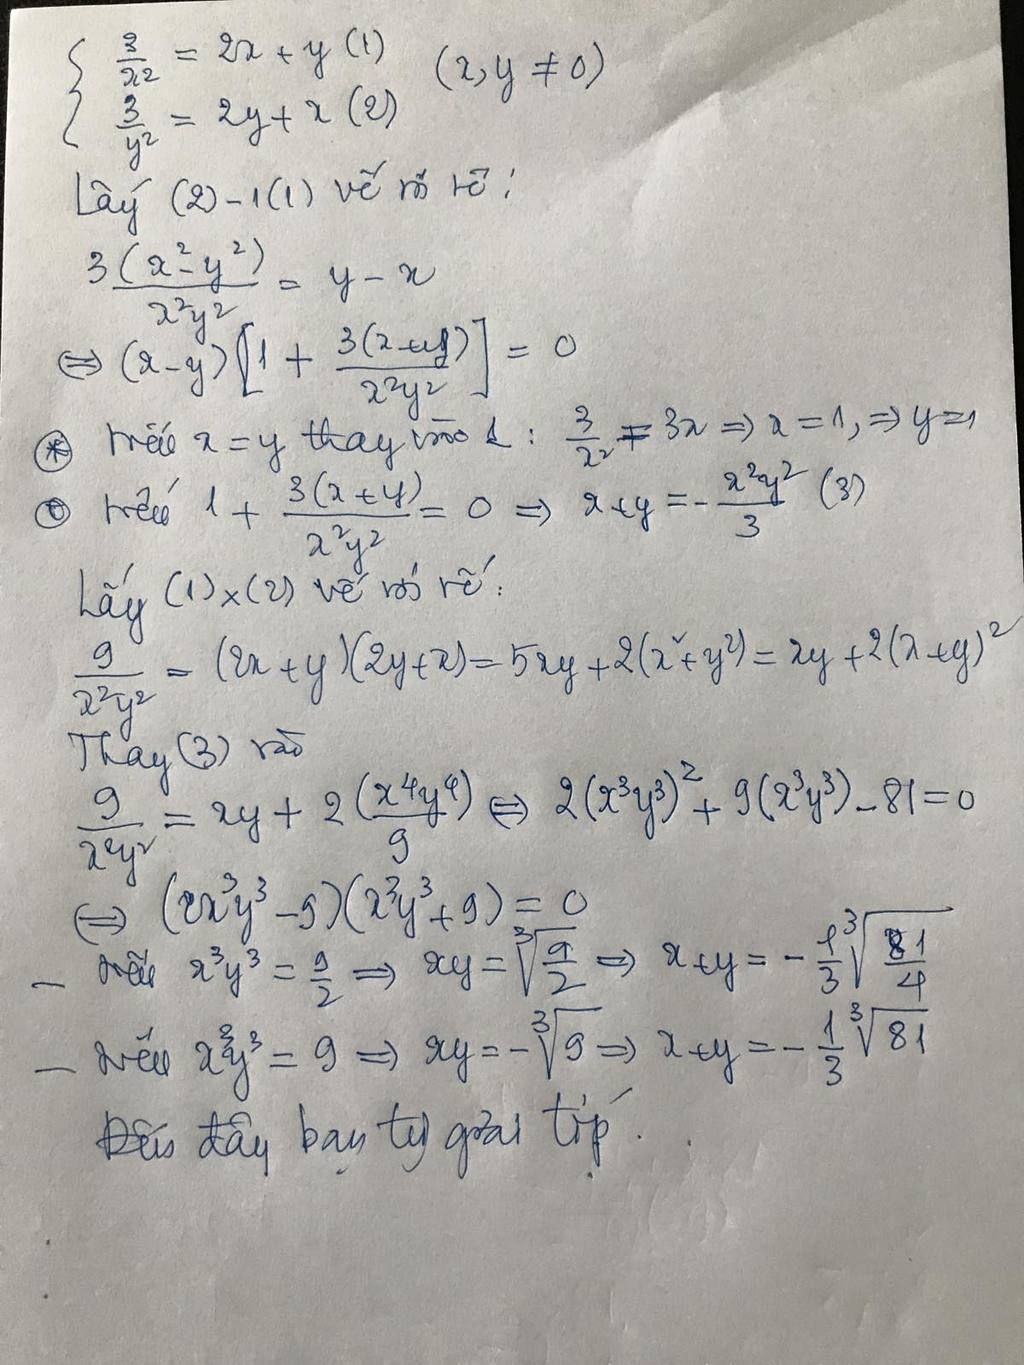 { 3/x² = 2x + y (1)
3/y² = 2y + x (2) (x, y ≠ 0)
Lấy (2) - 1(1) vế với vế:
3(x² - y²)/x²y² = y - x
⇔ (x - y)[1 + 3(x + y)/x²y²] = 0
⊛ nếu x = y thay vào 1: 3/x² = 3x ⇒ x = 1, ⇒ y = 1
⊙ nếu 1 + 3(x + y)/x²y² = 0 ⇒ x + y = - x²y²/3 (3)
Lấy (1) x (2) vế với vế:
9/x²y² = (2x + y)(2y + x) = 5xy + 2(x² + y²) = xy + 2(x + y)²
Thay (3) vào
9/x²y² = xy + 2(x⁴y⁴)/9 ⇔ 2(x³y³)² + 9(x³y³) - 81 = 0
⇔ (2x³y³ - 9)(x³y³ + 9) = 0
- nếu x³y³ = 9/2 ⇒ xy = ∛(9/2) ⇒ x + y = - 1/3 ∛(81/4)
- nếu x³y³ = 9 ⇒ xy = - ∛9 ⇒ x + y = - 1/3 ∛81
Đến đây bạn tự giải tiếp.